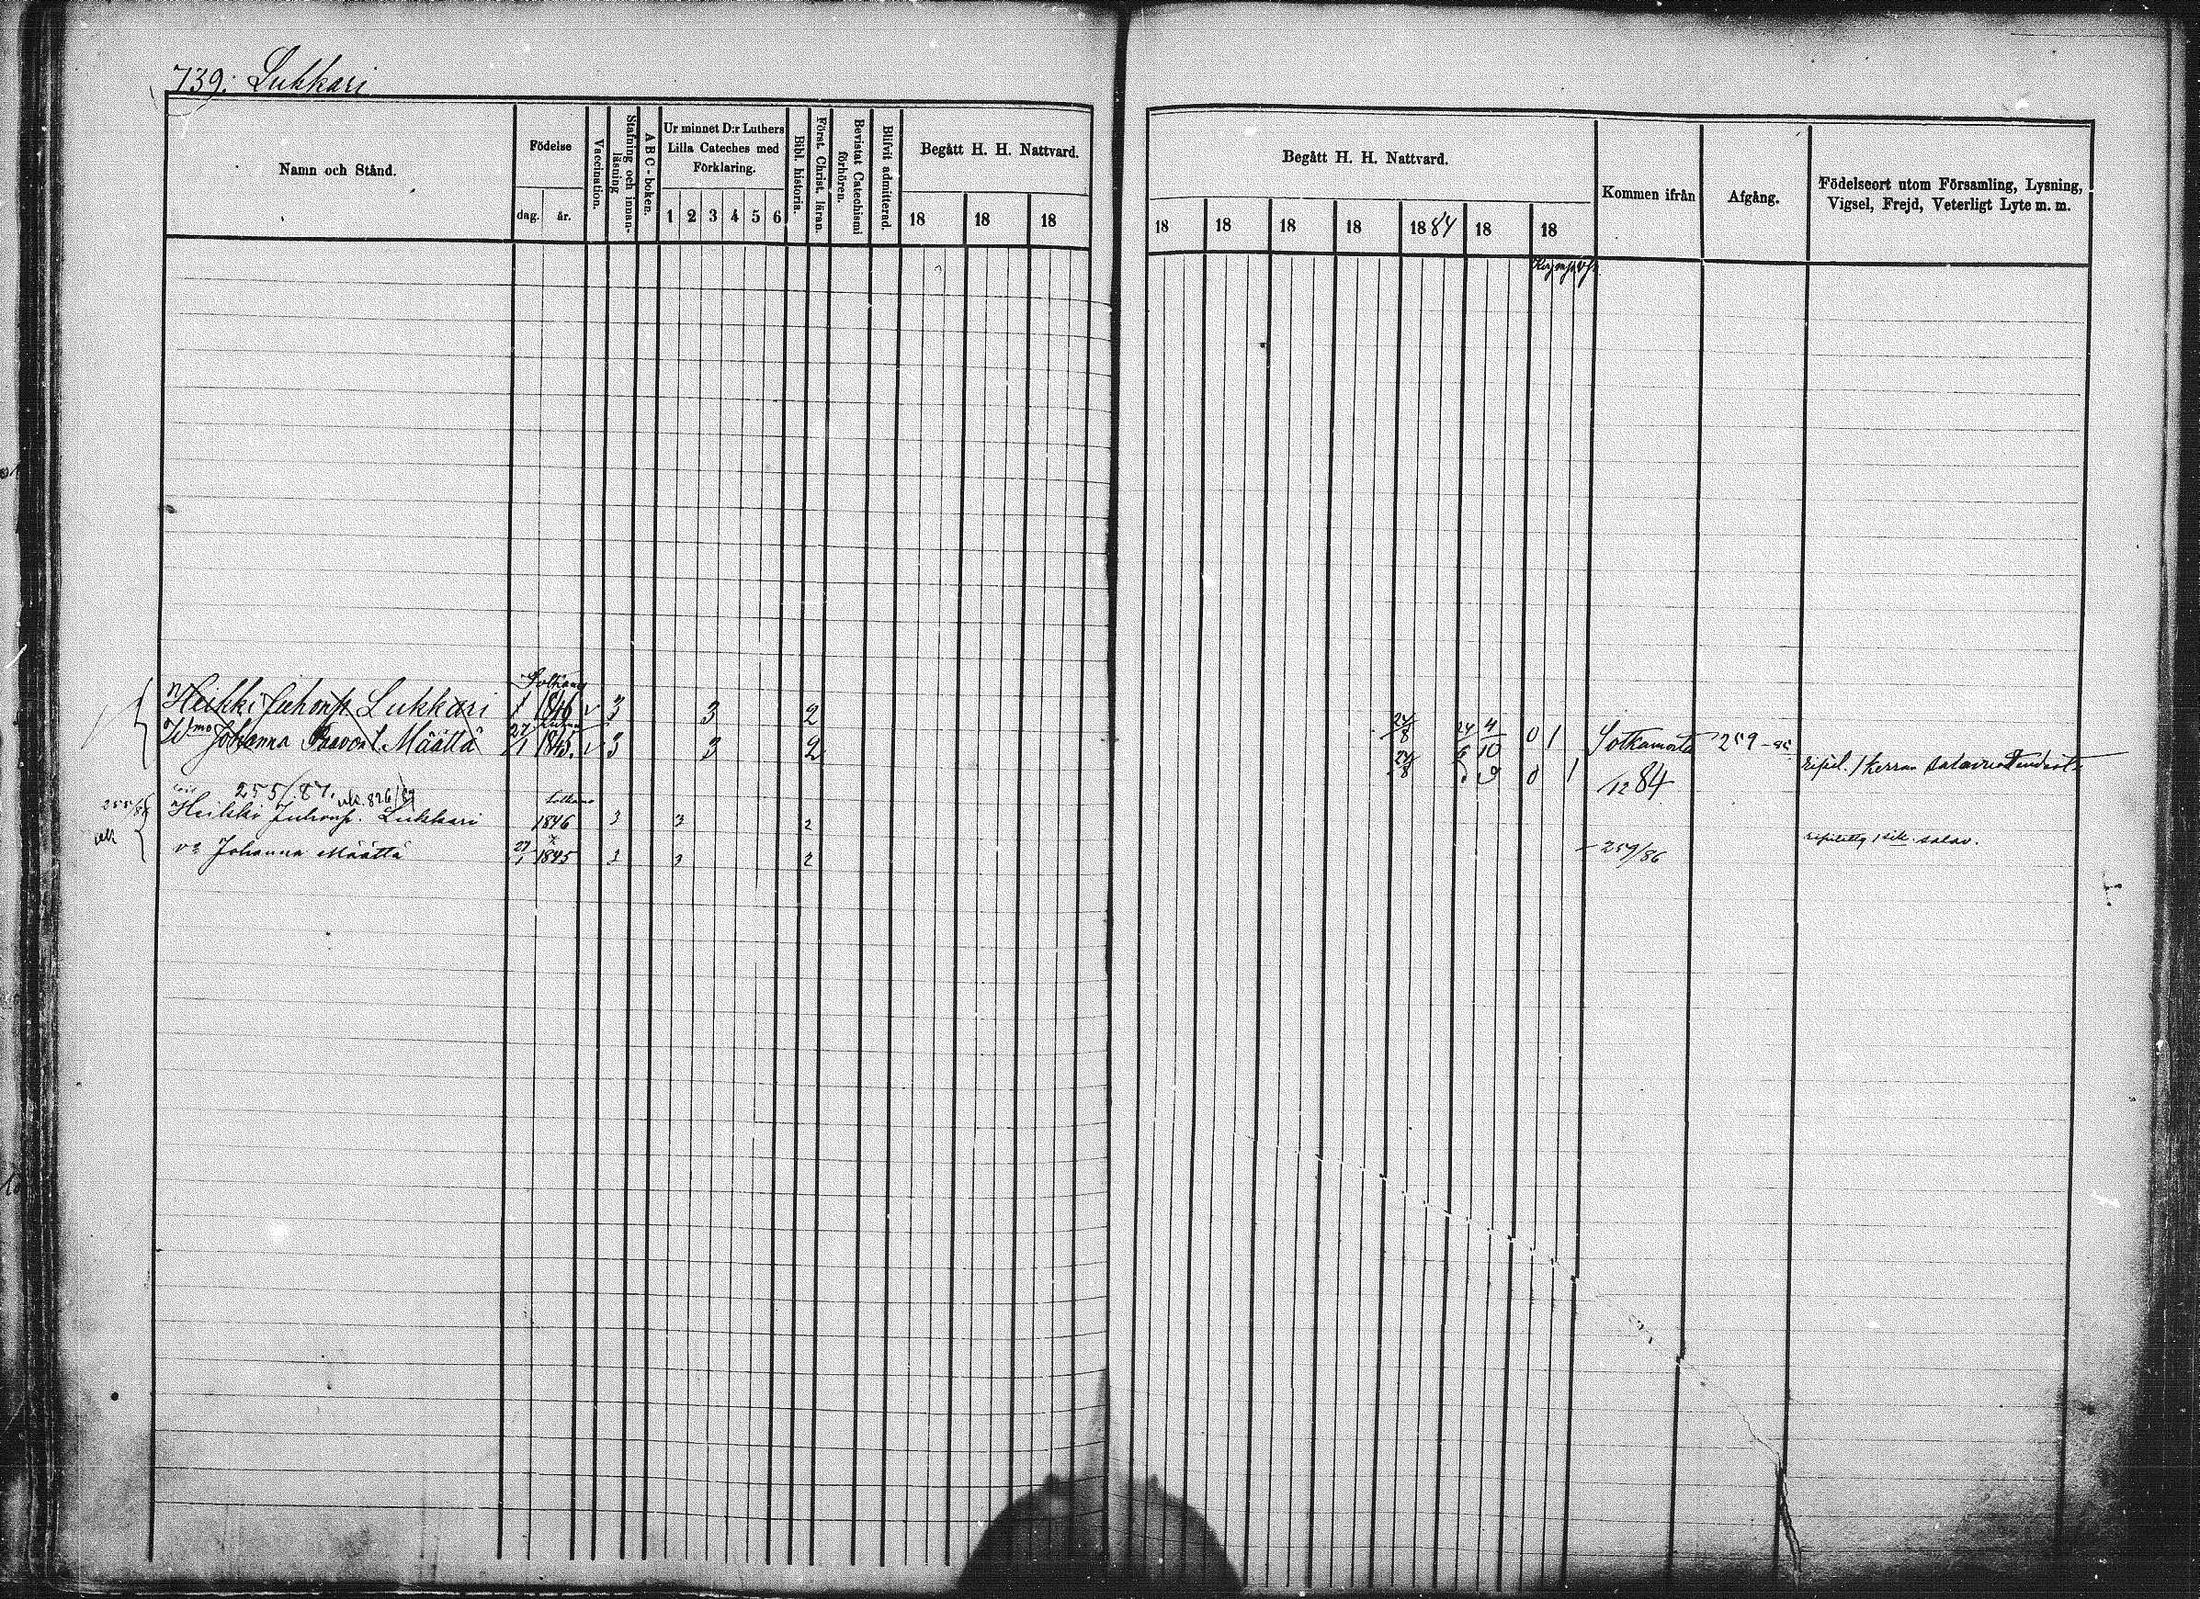 739. Lukkari
Namn och Stånd.
Födelse
dag. år.
Vaccination.
Stafning och innanläsning
ABC-boken.
Ur minnet D:r Luthers
Lilla Cateches med
Förklaring.
1 2 3 4 5 6
Bibl. historia.
Först. Christ. läran.
Bevistat Catechismi
förhören.
Blifvit admitterad.
Begått H. H. Nattvard.
18 18 18
Begått H. H. Nattvard.
18 18 18 18 1884 18 18
Kommen ifrån
Afgång.
Födelseort utom Församling, Lysning,
Vigsel, Frejd, Veterligt Lyte m. m.
Heikki Juhonp. Lukkari 1846 v 3 3 2 24/8 4/10 0 1 Sotkamosta 259-85
Johanna Paavont. Määttä 27/1 1845. v 3 3 2 24/8 9 0 1 12 84
255/87. 826/89
255/86
Heikki Juhonp. Lukkari 1846 3 3 2
Johanna Määttä 27/1 1845 3 3 2 259/86